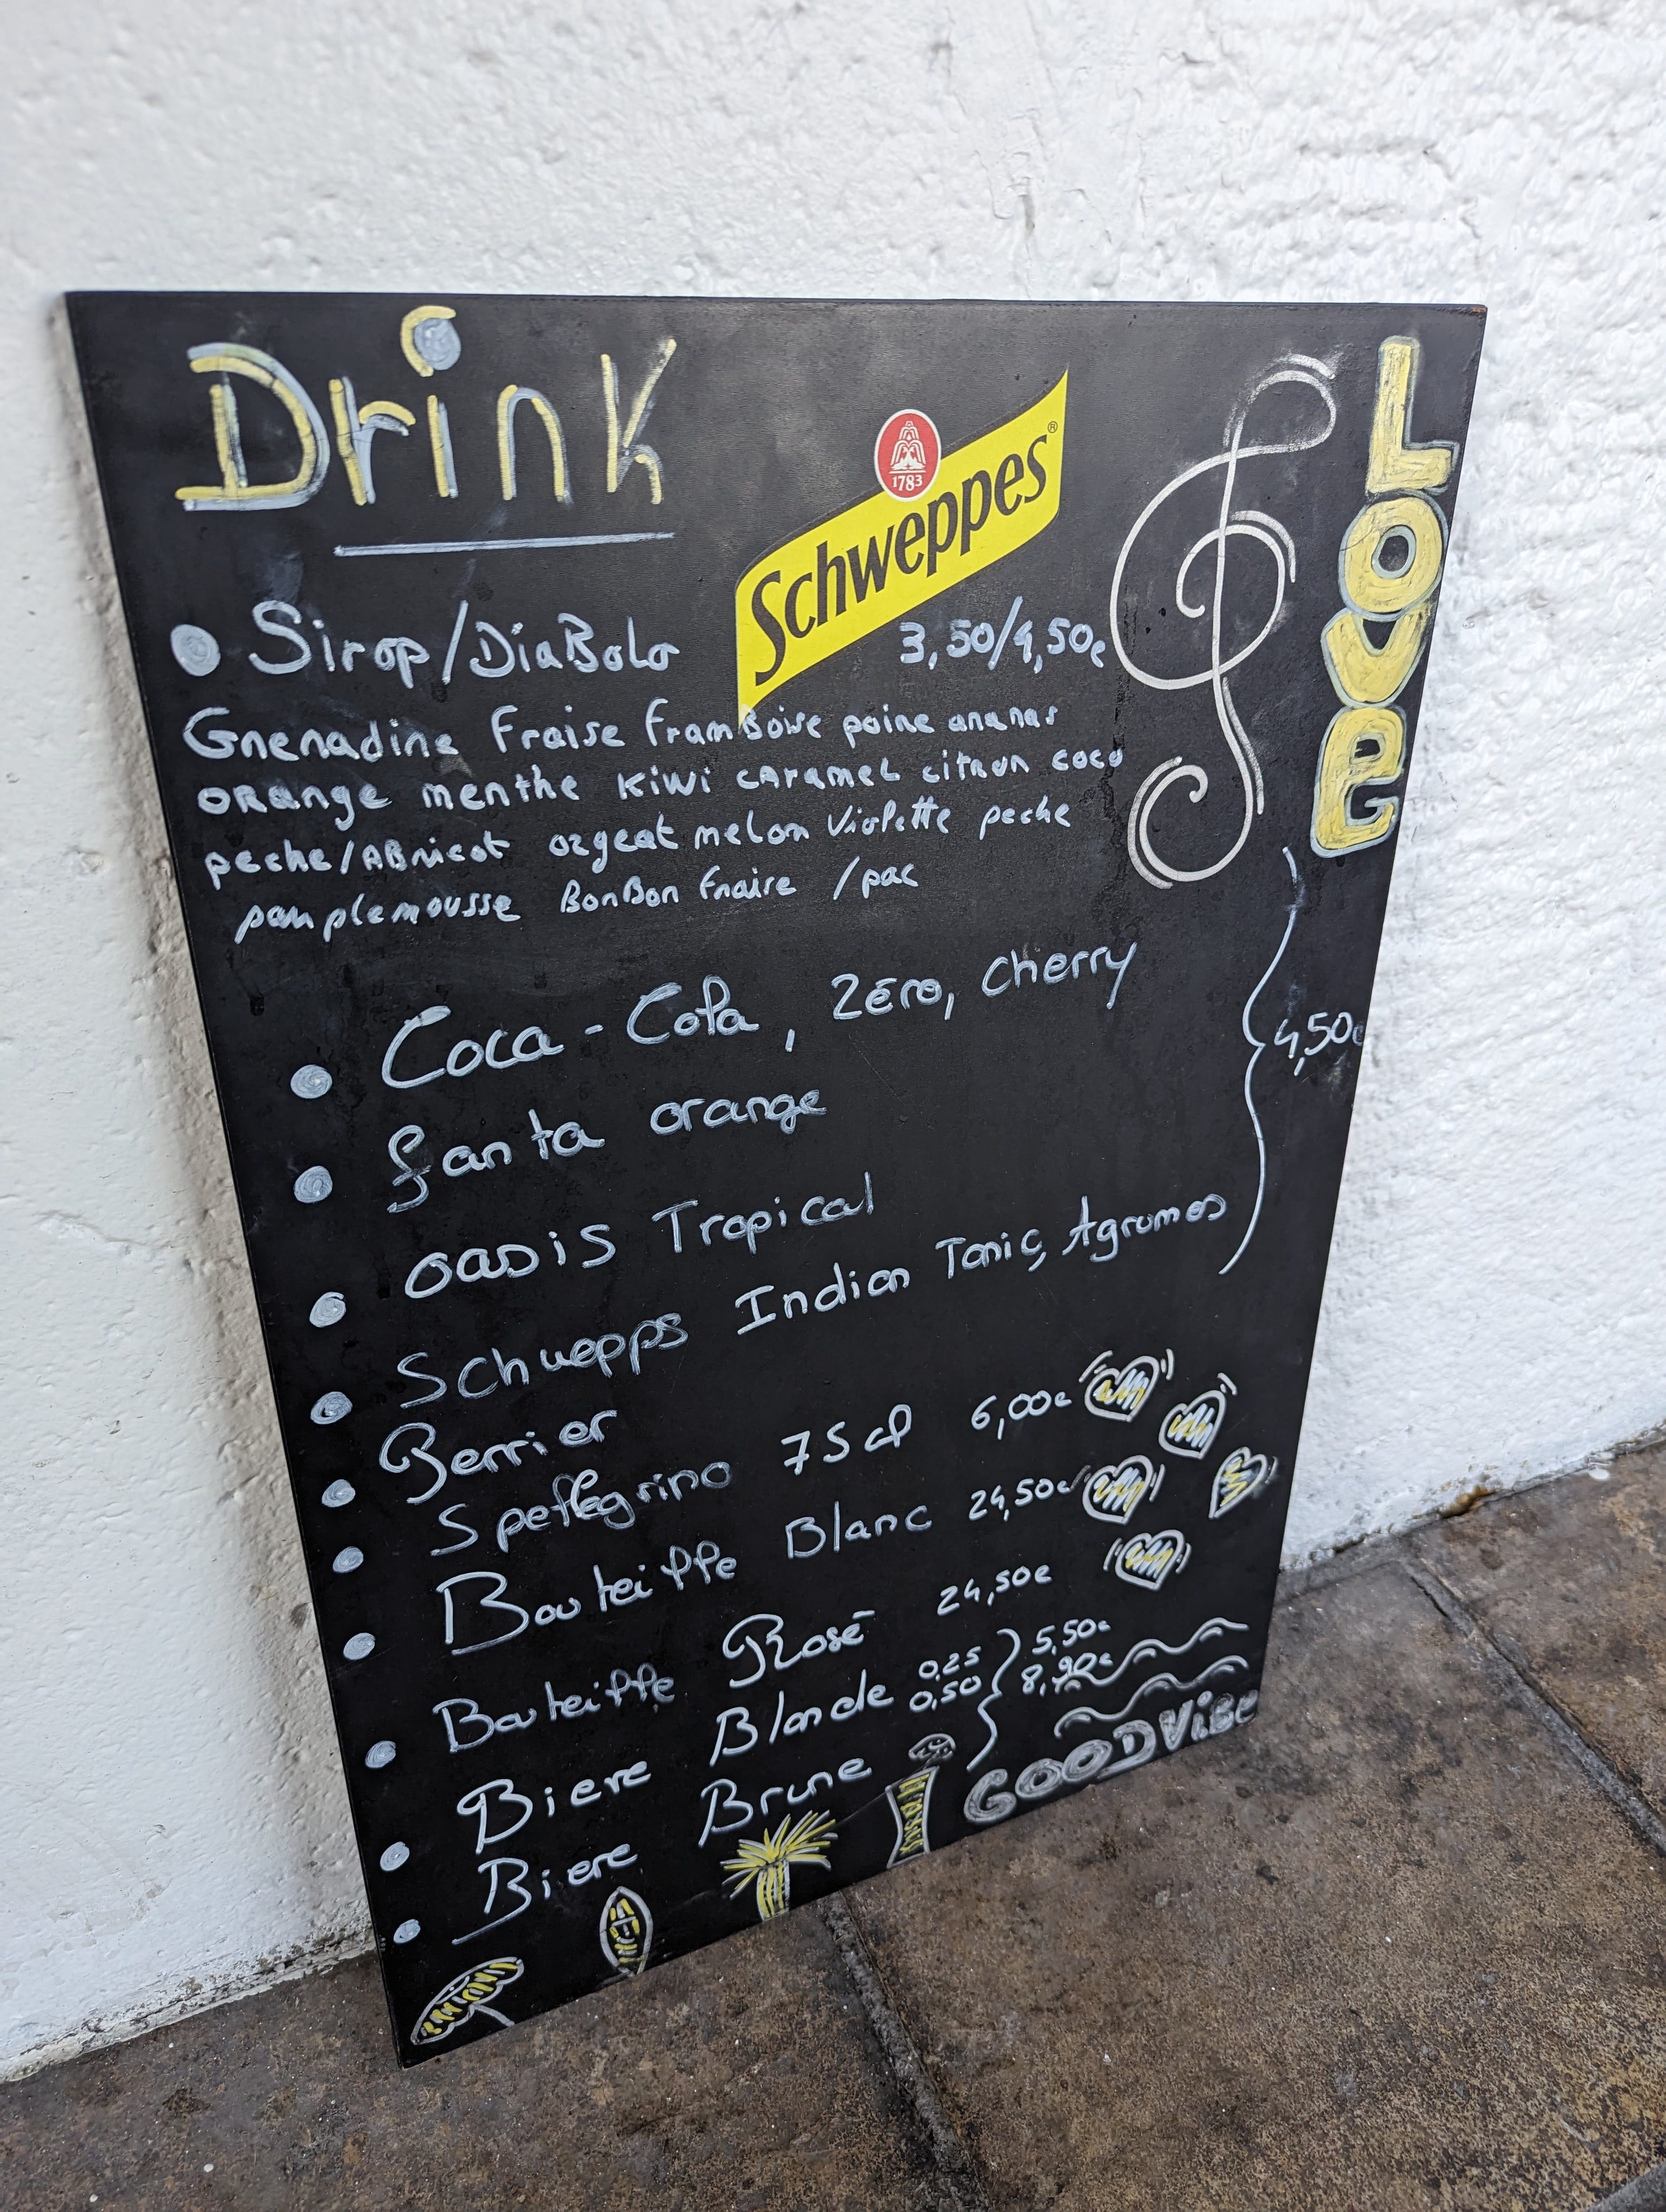 Drink
1783
Schweppes®
Love
Sirop/DiaBolo 3,50/4,50€
Grenadine Fraise FramBoise poire ananas
orange menthe KiWi CARAMEL citron coco
peche/ABricot orgeat melon Violette peche
pamplemousse BonBon fraise /pac
Coca-Cola, Zéro, Cherry
fanta orange
4,50€
oasis Tropical
Schwepps Indian Tonic, Agrumes
Perrier
S pellegrino 75cl 6,00€
Bouteille Blanc 24,50€
Bouteille Rosé 24,50€
Biere Blonde 0,25 5,50€
0,50 8,90€
Biere Brune
GOOD ViBe